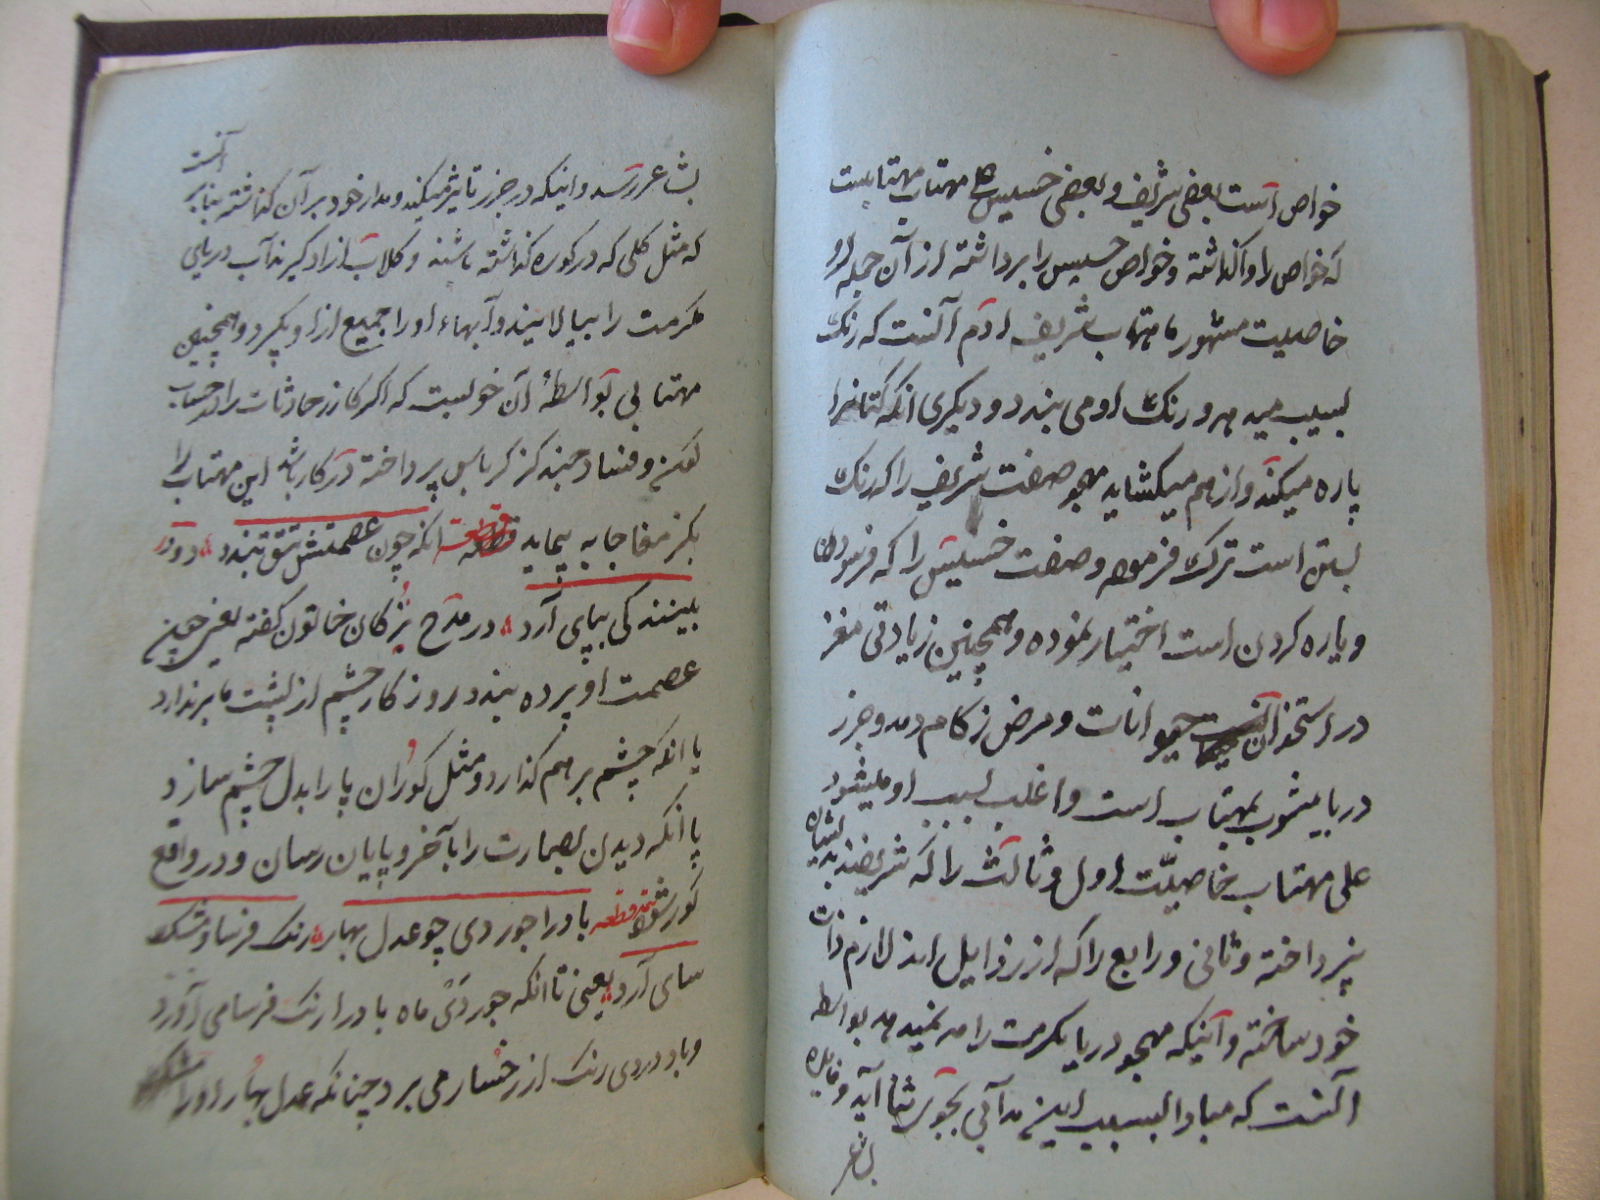 خواص است بعضی شریف و بعضی خسیس مهتاب
که خواص را واگذاشته و خواص خسیس را برداشته از آن جمله او
خاصیت مشهور ماهتاب شریف آنست که رنگ
لسبب میدهد و رنگ او می بندد و دیگری انکه کتانرا
پاره میکند و از هم میکشاید مهجو صفت شریف را که رنگ
بستن است ترک فرموده و صفت خسیس را که فرسودن
و پاره کردن است اختیار نموده و همچنین زیادتی مغز
در استخوان حیوانات و مرض زکام و مد و جزر
دریا بمهتاب است و اغلب بسبب او میشود
علی مهتاب خاصیّت اول و ثالث را که شریفند بدیشان
نپرداخته و ثانی و رابع را که از رذایل اند لازم ذات
خود ساخته و اینکه مهجو دریا بکرمت را مد نمیدهد بواسطه
آنست که مبادا بسبب این مد آبی بجوی شما آید و فایده
بشما عر رسد و اینکه در جزر تاثیر میکند و مدار خود بر آن گذاشته بنابر آنست
که مثل گلی که در کوره گذاشته باشند و گلاب از او گیرند آب دریای
کرمت را بپالایند و آبهاء او را جمیع از او بگیرد و همچنین
مهتابی بواسطهٔ آن خوبست که اگر گازر حادثات را در حساب
کون و فساد چند گز کرباس پرداخته در کار باشد این مهتاب را
بگز مفاجا به پیماید قطعه انکه چون عصمتش تتق بندد دور
بیند کی بپای آرد در مدح بُزرگان خاتون گفته یعنی چون
عصمت او پرده بندد روزگار چشم از پشت پا برندارد
یا انکه چشم بر هم گذارد و مثل کوران پا را بدل چشم سازد
یا انکه دیدن بصارت را بآخر و پایان رسان و در واقع
کور شود تتمه قطعه باد را جور دی چو عدل بهار رنگ فرسا و مشک
سای آرد یعنی تا انکه جور دی ماه باد را رنگ فرسا می آورد
و باد در دی رنگ از رخسار می برد چنانکه عدل بهار او را